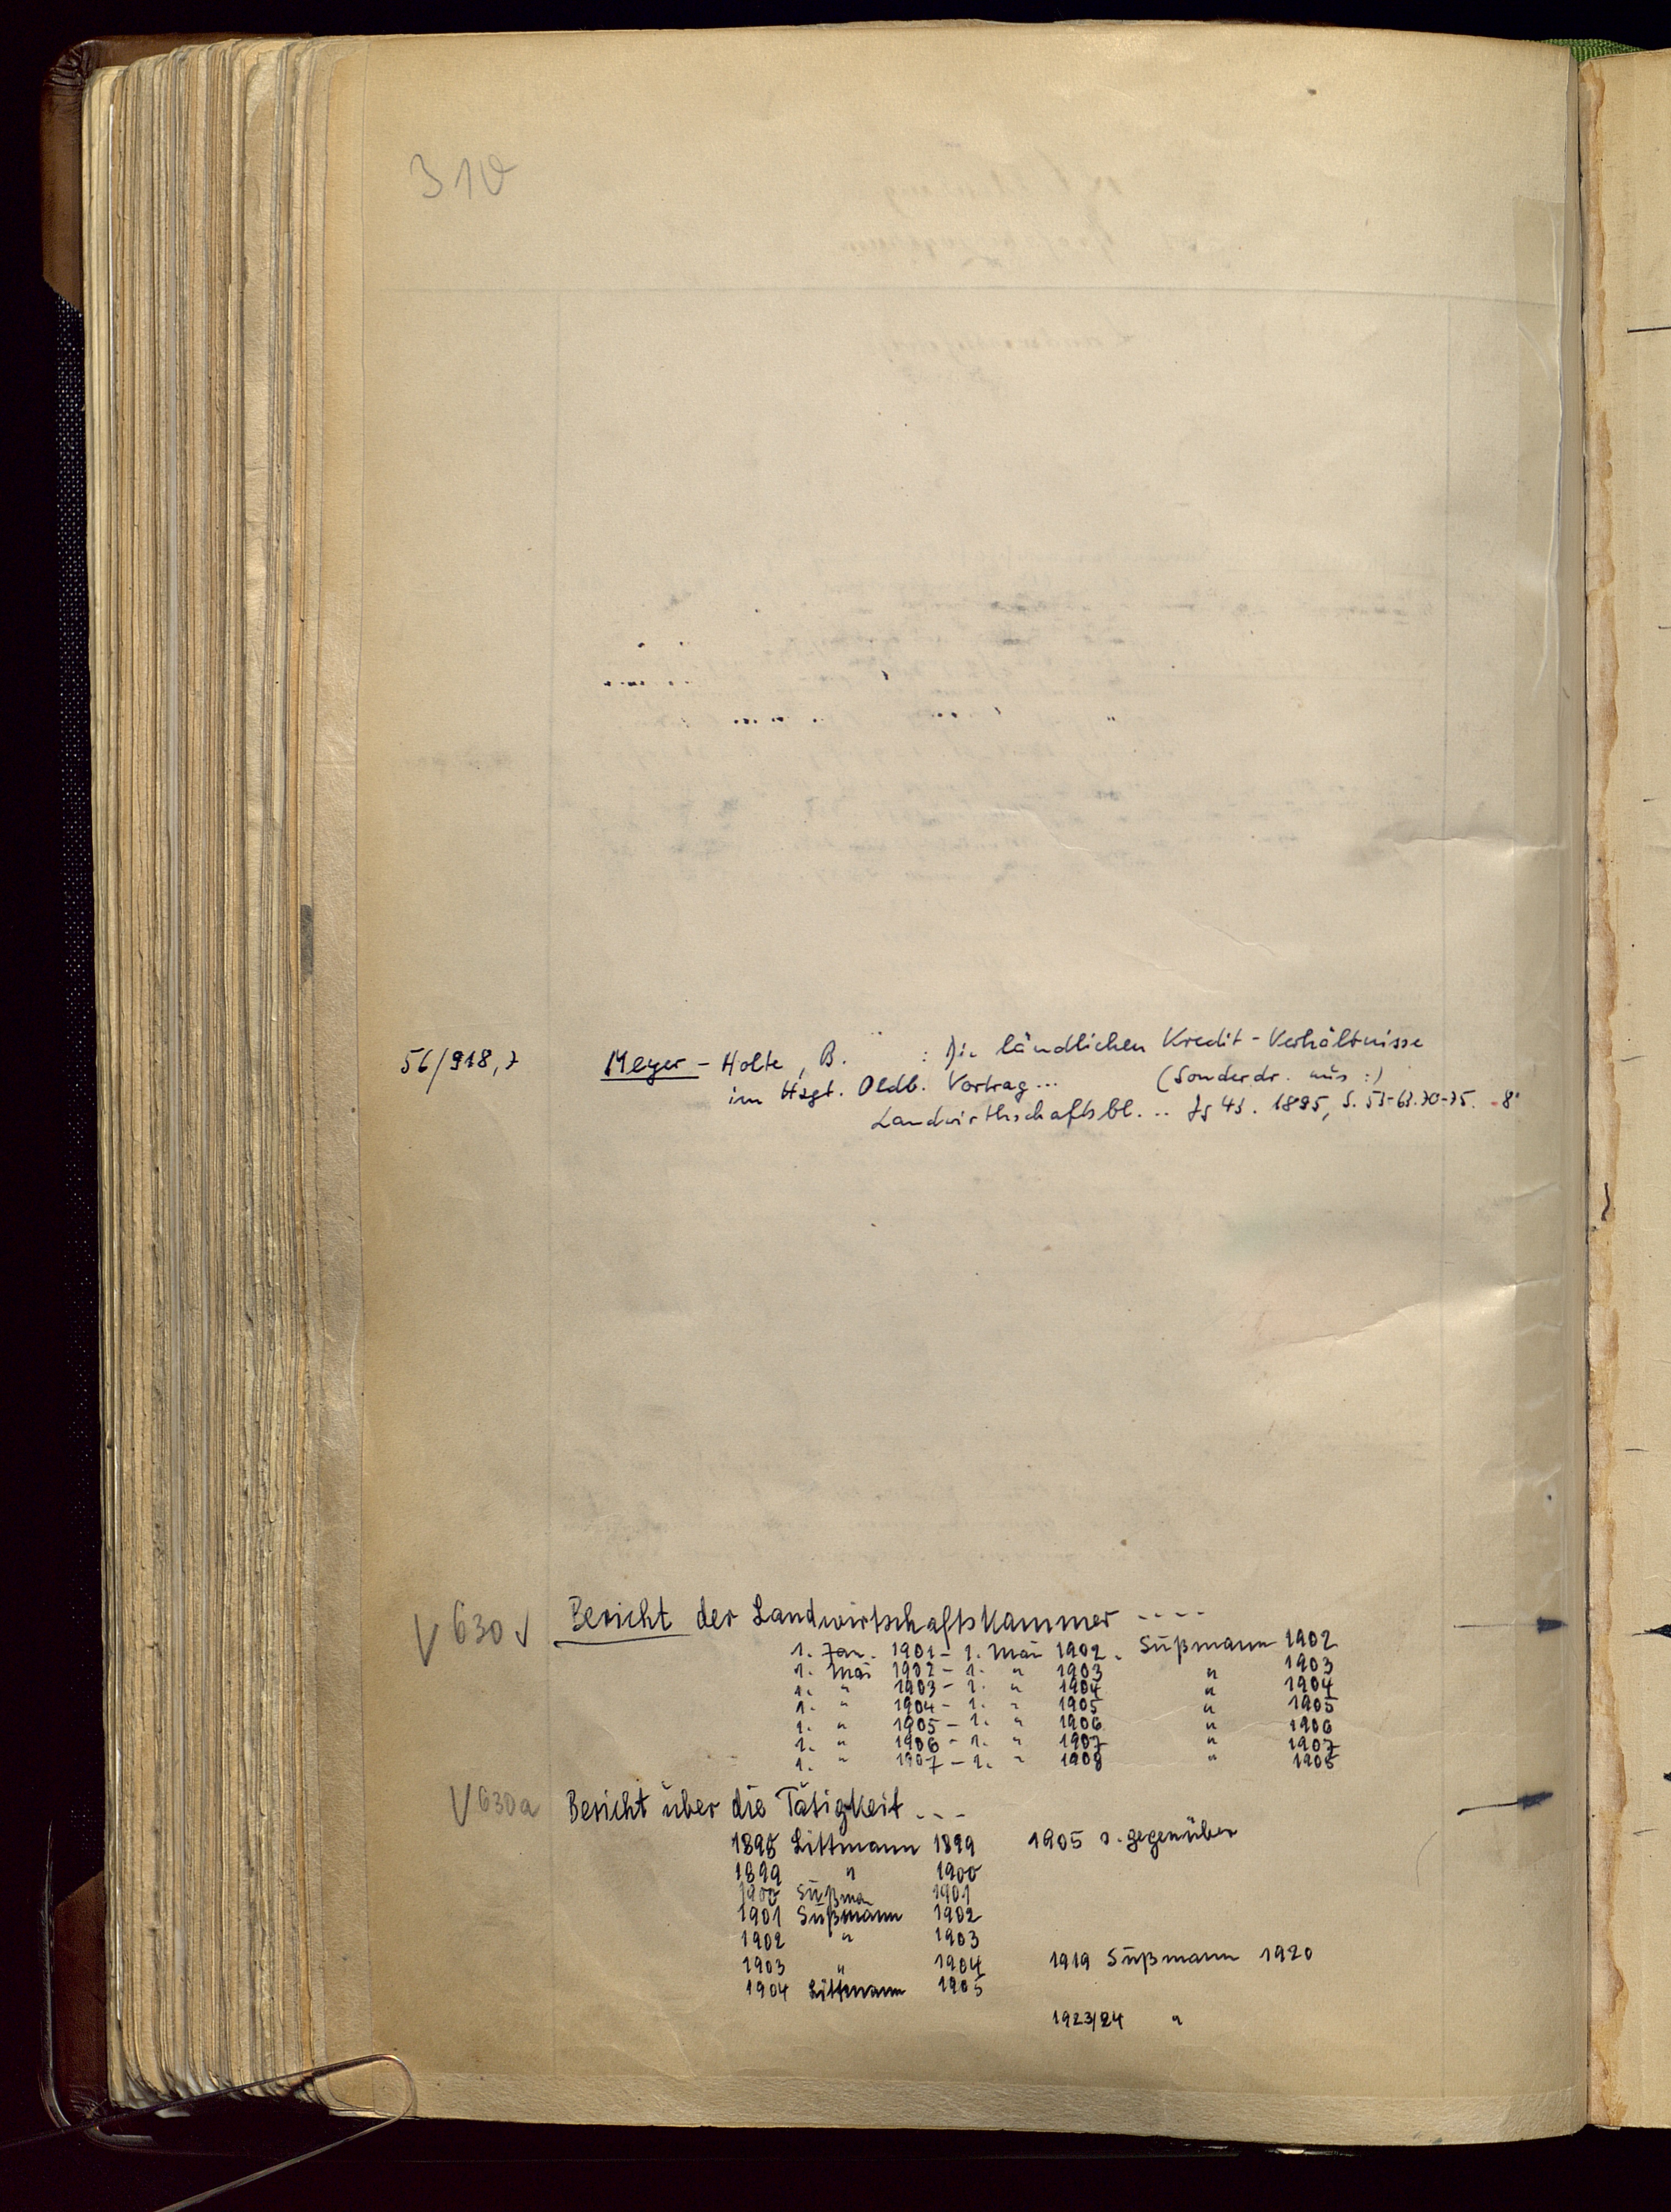 310
56/918,7 Meyer - Holte, B. : Die ländlichen Kredit-Verhältnisse
im Hzgt. Oldb. Vortrag... (Sonderdr. aus :)
Landwirthschaftsbl. ... Jg 43. 1895, S. 53-63.70-75. - 8°
V 630 √ Bericht der Landwirtschaftskammer ----
1. Jan. 1901 - 1. Mai 1902. Süßmann 1902
1. Mai 1902 - 1. " 1903 " 1903
1. " 1903 - 1. " 1904 " 1904
1. " 1904 - 1. " 1905 " 1905
1. " 1905 - 1. " 1906 " 1906
1. " 1906 - 1. " 1907 " 1907
1. " 1907 - 1. " 1908 " 1908
V 630a Bericht über die Tätigkeit ---
1898 Littmann 1899 1905 s. gegenüber
1899 " 1900
1900 Süßman 1901
1901 Süßmann 1902
1902 " 1903
1903 " 1904 1919 Süßmann 1920
1904 Littmann 1905
1923/24 "